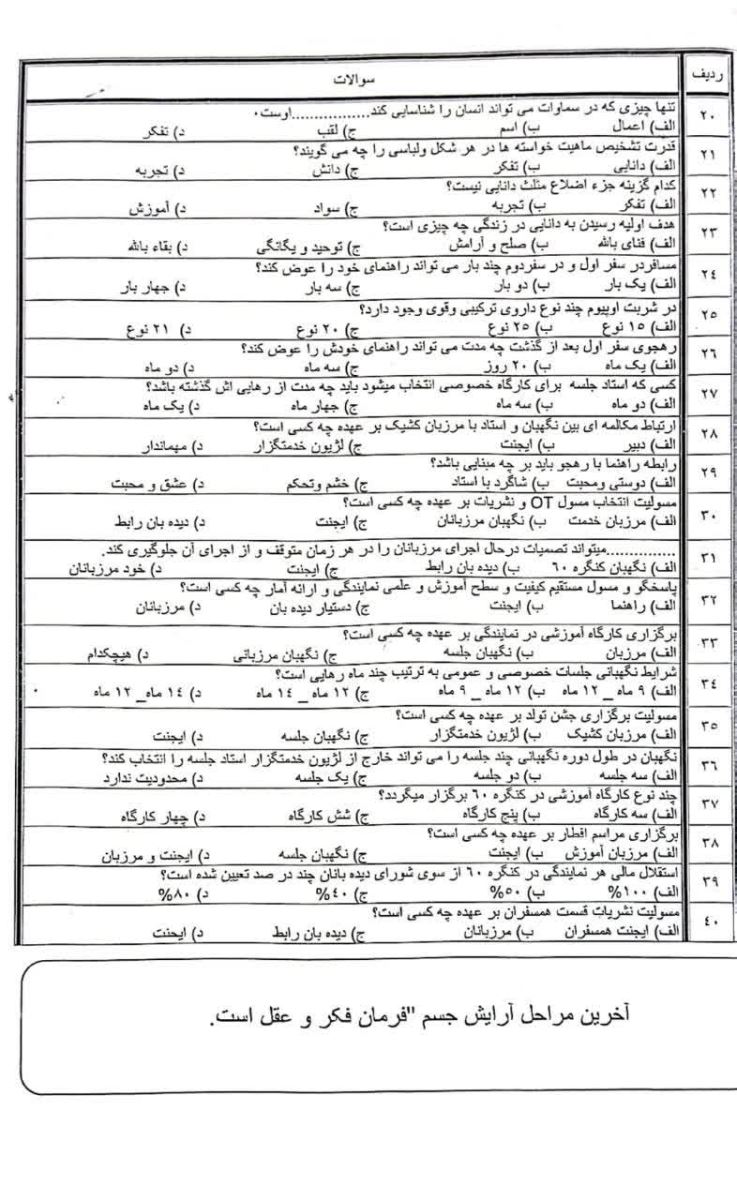 ردیف سوالات
۲۰ تنها چیزی که در سماوات می تواند انسان را شناسایی کند................اوست۰
الف) اعمال ب) اسم ج) لقب د) تفکر
۲۱ قدرت تشخیص ماهیت خواسته ها در هر شکل ولباسی را چه می گویند؟
الف) دانایی ب) تفکر ج) دانش د) تجربه
۲۲ کدام گزینه جزء اضلاع مثلث دانایی نیست؟
الف) تفکر ب) تجربه ج) سواد د) آموزش
۲۳ هدف اولیه رسیدن به دانایی در زندگی چه چیزی است؟
الف) فنای بالله ب) صلح و آرامش ج) توحید و یگانگی د) بقاء بالله
۲٤ مسافردر سفر اول و در سفردوم چند بار می تواند راهنمای خود را عوض کند؟
الف) یک بار ب) دو بار ج) سه بار د) جهار بار
۲٥ در شربت اوپیوم چند نوع داروی ترکیبی وقوی وجود دارد؟
الف) ۱٥ نوع ب) ۲٥ نوع ج) ۲۰ نوع د) ۲۱ نوع
۲٦ رهجوی سفر اول بعد از گذشت چه مدت می تواند راهنمای خودش را عوض کند؟
الف) یک ماه ب) ۲۰ روز ج) سه ماه د) دو ماه
۲۷ کسی که استاد جلسه برای کارگاه خصوصی انتخاب میشود باید چه مدت از رهایی اش گذشته باشد؟
الف) دو ماه ب) سه ماه ج) جهار ماه د) یک ماه
۲۸ ارتباط مکالمه ای بین نگهبان و استاد با مرزبان کشیک بر عهده چه کسی است؟
الف) دبیر ب) ایجنت ج) لژیون خدمتگزار د) مهماندار
۲۹ رابطه راهنما با رهجو باید بر چه مبنایی باشد؟
الف) دوستی ومحبت ب) شاگرد با استاد ج) خشم وتحکم د) عشق و محبت
۳۰ مسولیت انتخاب مسول OT و نشریات بر عهده چه کسی است؟
الف) مرزبان خدمت ب) نگهبان مرزبانان ج) ایجنت د) دیده بان رابط
۳۱ ...............میتواند تصمیات درحال اجرای مرزبانان را در هر زمان متوقف و از اجرای آن جلوگیری کند.
الف) نگهبان کنگره ٦۰ ب) دیده بان رابط ج) ایجنت د) خود مرزبانان
۳۲ پاسخگو و مسول مستقیم کیفیت و سطح آموزش و علمی نمایندگی و ارائه آمار چه کسی است؟
الف) راهنما ب) ایجنت ج) دستیار دیده بان د) مرزبانان
۳۳ برگزاری کارگاه آموزشی در نمایندگی بر عهده چه کسی است؟
الف) مرزبان ب) نگهبان جلسه ج) نگهبان مرزبانی د) هیچکدام
۳٤ شرایط نگهبانی جلسات خصوصی و عمومی به ترتیب چند ماه رهایی است؟
الف) ۹ ماه _ ۱۲ ماه ب) ۱۲ ماه _ ۹ ماه ج) ۱۲ ماه _ ۱٤ ماه د) ۱٤ ماه_ ۱۲ ماه
۳٥ مسولیت برگزاری جشن تولد بر عهده چه کسی است؟
الف) مرزبان کشیک ب) لژیون خدمتگزار ج) نگهبان جلسه د) ایجنت
۳٦ نگهبان در طول دوره نگهبانی چند جلسه را می تواند خارج از لژیون خدمتگزار استاد جلسه را انتخاب کند؟
الف) سه جلسه ب) دو جلسه ج) یک جلسه د) محدودیت ندارد
۳۷ چند نوع کارگاه آموزشی در کنگره ٦۰ برگزار میگردد؟
الف) سه کارگاه ب) پنج کارگاه ج) شش کارگاه د) چهار کارگاه
۳۸ برگزاری مراسم افطار بر عهده چه کسی است؟
الف) مرزبان آموزش ب) ایجنت ج) نگهبان جلسه د) ایجنت و مرزبان
۳۹ استقلال مالی هر نمایندگی در کنگره ٦۰ از سوی شورای دیده بانان چند در صد تعیین شده است؟
الف) ۱۰۰% ب) ٥۰% ج) ٤۰% د) ۸۰%
٤۰ مسولیت نشریات قسمت همسفران بر عهده چه کسی است؟
الف) ایجنت همسفران ب) مرزبانان ج) دیده بان رابط د) ایجنت
آخرین مراحل آرایش جسم "فرمان فکر و عقل است.